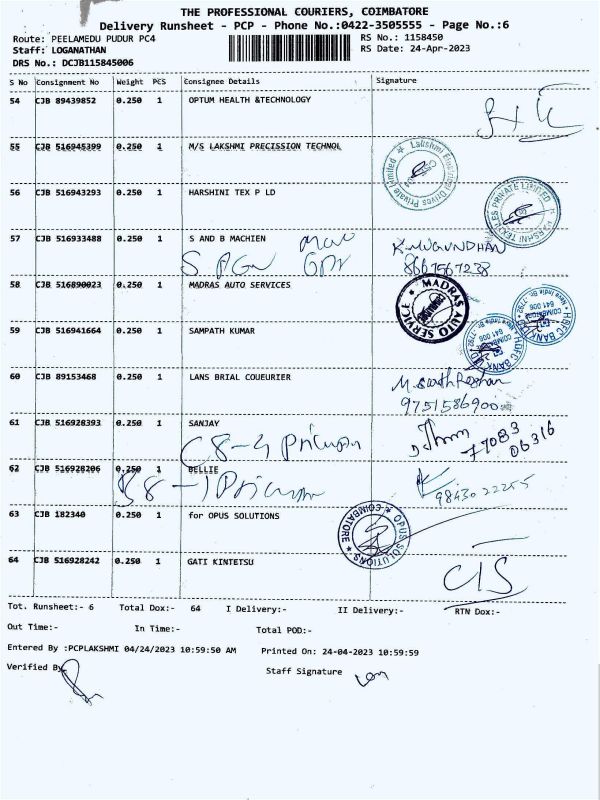 THE PROFESSIONAL COURIERS, COIMBATORE
Delivery Runsheet - PCP - Phone No.:0422-3505555 - Page No.:6
Route: PEELAMEDU PUDUR PC4 RS No.: 1158450
Staff: LOGANATHAN RS Date: 24-Apr-2023
DRS No.: DCJB115845006
S No Consignment No Weight PCS Consignee Details Signature
54 CJB 89439852 0.250 1 OPTUM HEALTH &TECHNOLOGY
55 CJB 516945399 0.250 1 M/S LAKSHMI PRECISSION TECHNOL
56 CJB 516943293 0.250 1 HARSHINI TEX P LD
57 CJB 516933488 0.250 1 S AND B MACHIEN K.MUGUNDHAN
8667567238
58 CJB 516890023 0.250 1 MADRAS AUTO SERVICES MADRAS AUTO SERVICE
59 CJB 516941664 0.250 1 SAMPATH KUMAR HDFC BANK
60 CJB 89153468 0.250 1 LANS BRIAL COUEURIER
9751586900
61 CJB 516928393 0.250 1 SANJAY 77083
06316
62 CJB 516928206 0.250 1 BELLIE
63 CJB 182340 0.250 1 for OPUS SOLUTIONS OPUS SOLUTIONS COIMBATORE
64 CJB 516928242 0.250 1 GATI KINTETSU
Tot. Runsheet:- 6 Total Dox:- 64 I Delivery:- II Delivery:- RTN Dox:-
Out Time:- In Time:- Total POD:-
Entered By :PCPLAKSHMI 04/24/2023 10:59:50 AM Printed On: 24-04-2023 10:59:59
Verified By Staff Signature